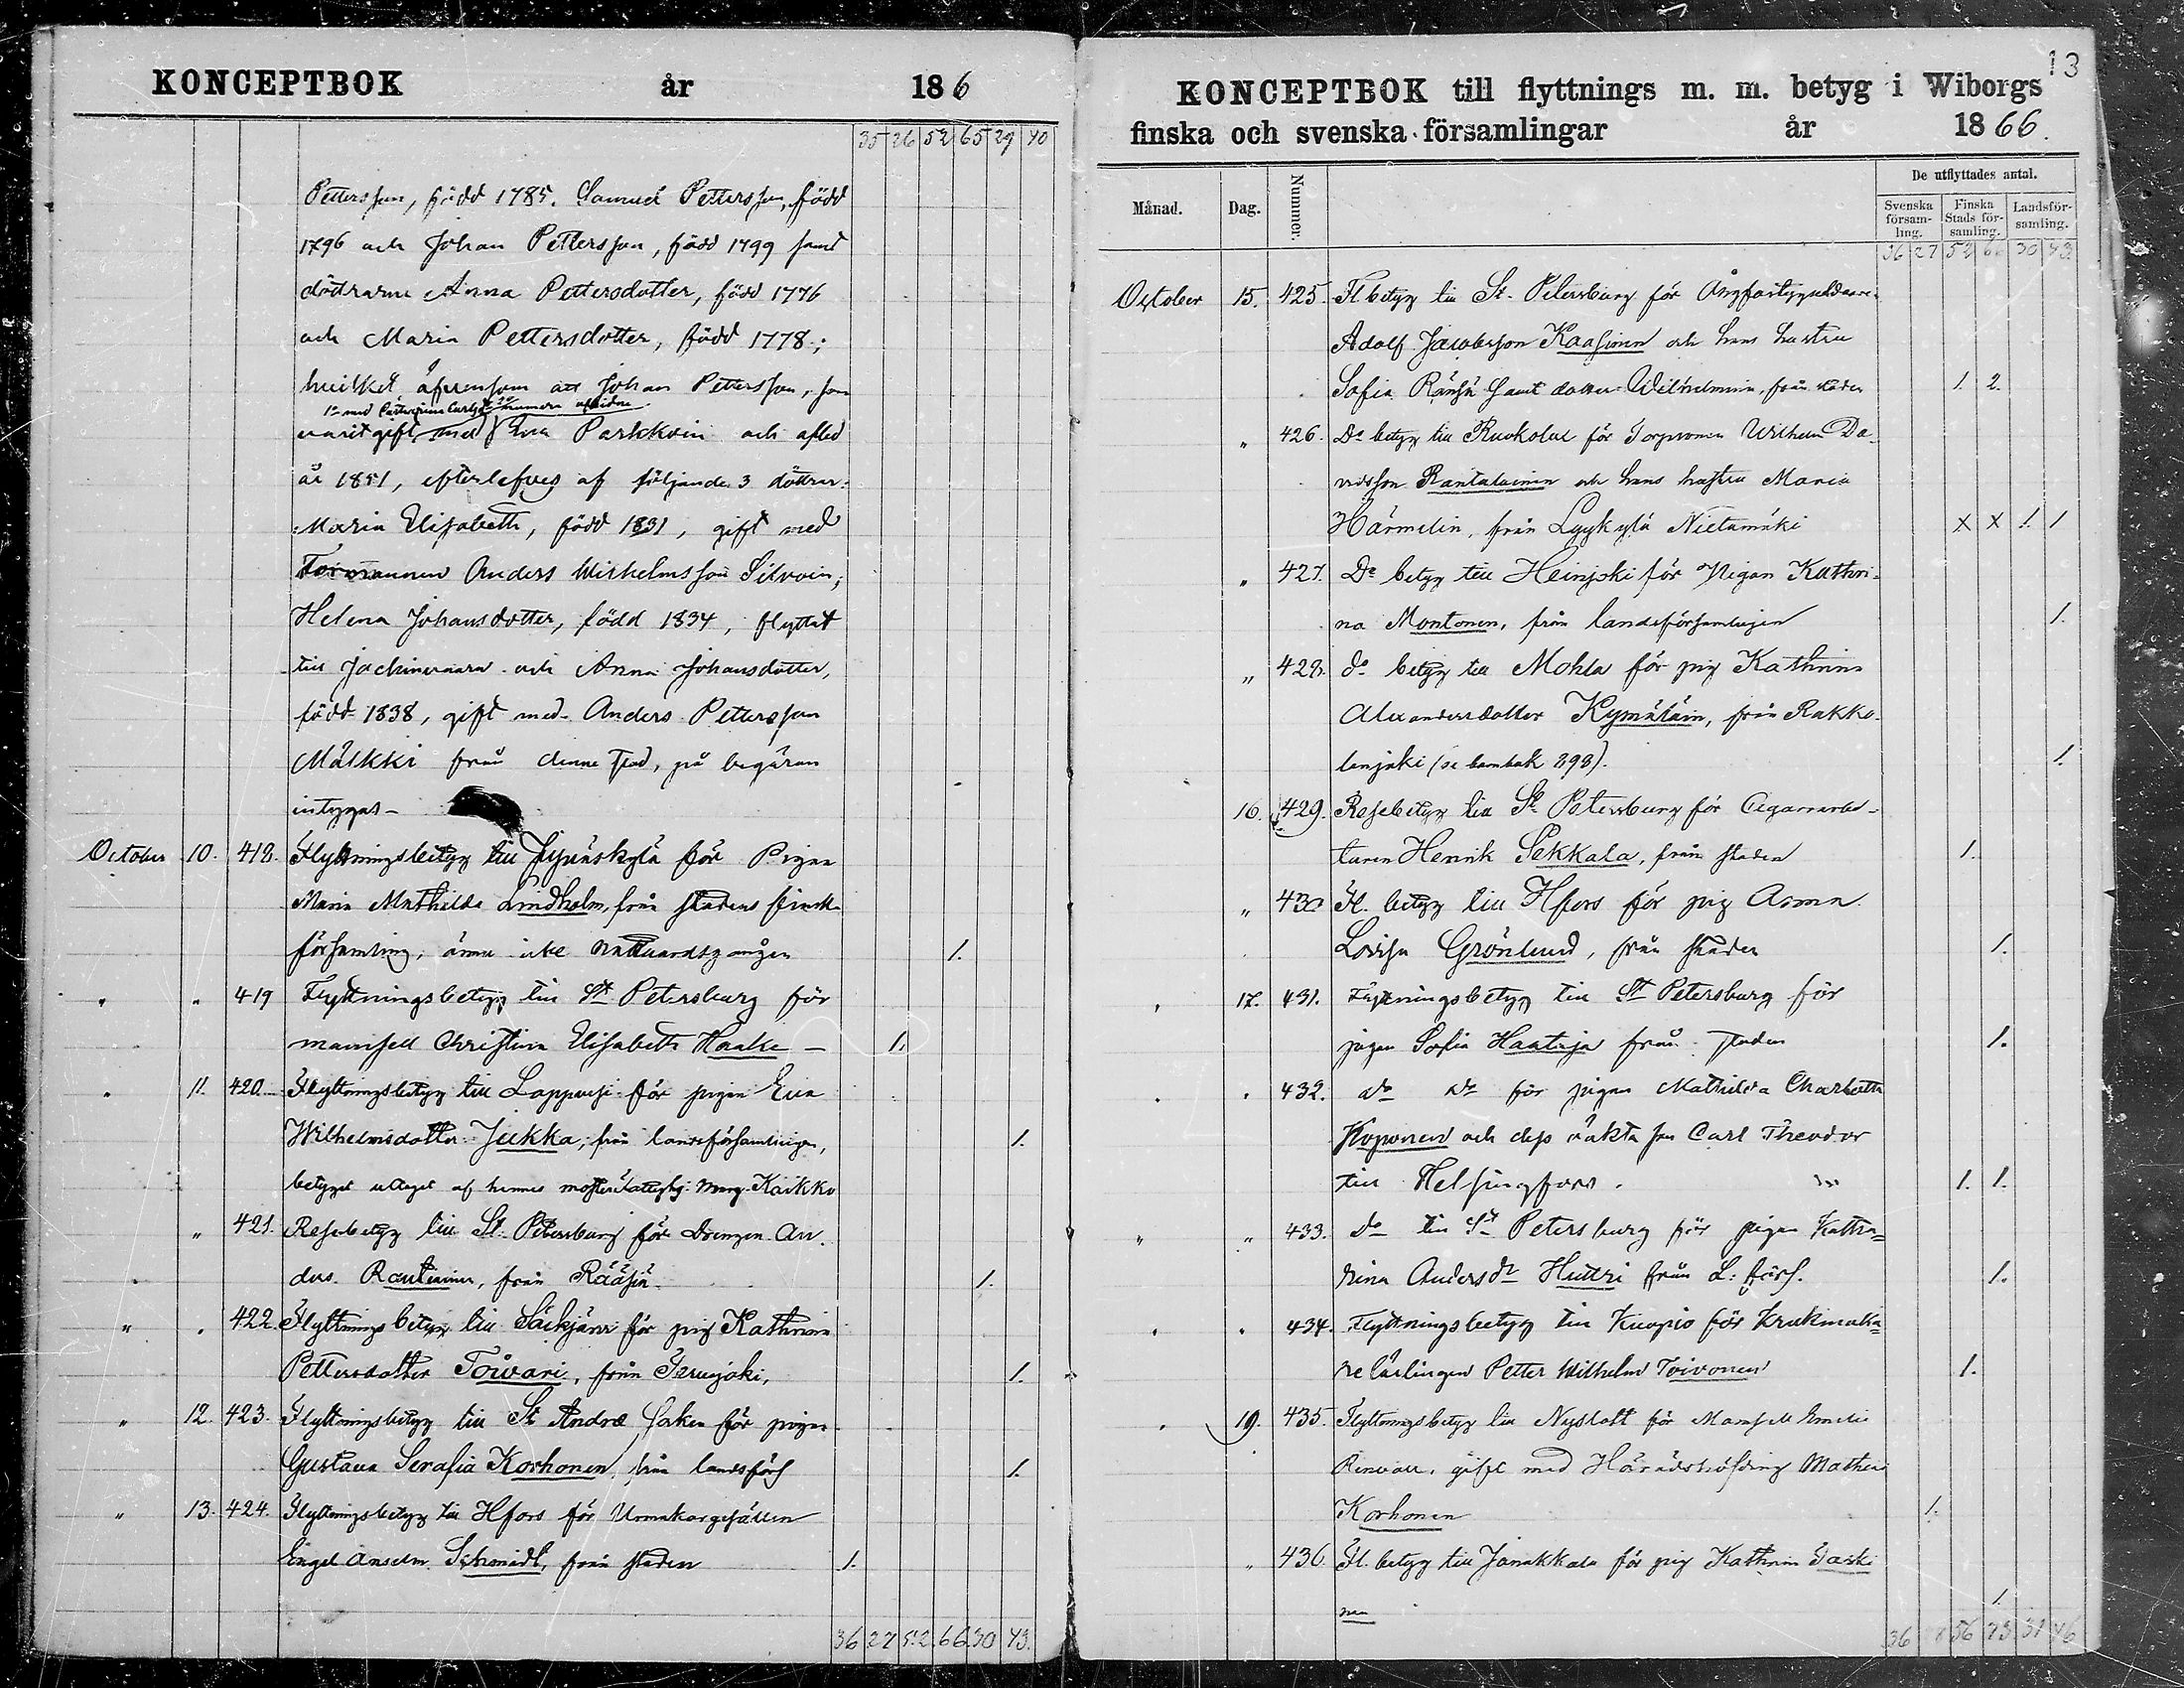 KONCEPTBOK år 186
35 26 52 65 29 40
Pettersson, född 1785. Samuel Pettersson, född
1796 och Johan Pettersson, född 1799 samt
döttrarne Anna Pettersdotter, född 1776
och Maria Pettersdotter, född 1778;
hvilket äfvensom att Johan Pettersson, som
varit gift med Eva Parkkoin och afled
år 1851, efterlefves af följande 3 döttrar:
Maria Elisabeth, född 1831, gift med
Anders Wilhelmsson Silvoin;
Helena Johansdotter, född 1834, flyttat
till Jachimvaara och Anna Johansdotter,
född 1838, gift med Anders Pettersson
Mälkki från denne stad, på begäran
intygas -
October 10. 418. Flyttningsbetyg till Jyväskylä för Pigan
Maria Mathilda Lindholm, från stadens finska
församling, ännu icke nattvardsgången 1.
" " 419 Flyttningsbetyg till St Petersburg för
mamsell Christina Elisabeth Haake - 1.
" 11. 420. Flyttningsbetyg till Lappvesi för pigan Eva
Wilhelmsdotter Jukka, från landsförsamlingen, 1.
betyget uttaget af hennes moster Kaikko
" 421. Resebetyg till St. Petersburg för Drengen An-
ders Rautiainen, från Rääsin 1.
" " 422. Flyttningsbetyg till Säkjärvi för pig Kathrina
Pettersdotter Toivari, från Tervajoki, 1.
" 12. 423. Flyttningsbetyg till St Andræ socken för pigan
Gustava Serafia Korhonen från landsförs 1.
" 13. 424. Flyttningsbetyg till Hfors för Urmakargesällen
Engel Anselm Schmidt, från staden 1.
36 27 52 66 30 43.
13
KONCEPTBOK till flyttnings m. m. betyg i Wiborgs
finska och svenska församlingar år 1866.
Månad. Dag. Nummer. De utflyttades antal.
Svenska församling. Finska Stads församling. Landsförsamling.
36 27 52 66 30 43
October 15. 425. Fl betyg till St. Petersburg för
Adolf Jacobsson Kaasinen och hans hustru
Sofia Ränsä samt dotter Wilhelmina, från staden 1. 2.
" 426. Do betyg till Ruokolax för Wilhelm Da-
vidsson Rantalainen och hans hustru Maria
Härmelin, från Lyykylä Nietamäki x x 1. 1
" 427. Do betyg till Heinjoki för Pigan Kathri-
na Montonen, från landsförsamlingen 1.
" 428. do betyg till Mohla för pig Kathrina
Alexandersdotter Kymäläin, från Rakko-
lanjoki (se barnbok 898). 1.
16. 429. Resebetyg till St Petersburg för Cigararbe-
taren Henrik Sekkala, från staden 1.
" 430 Fl. betyg till Hfors för pig Anna
Lovisa Grönlund, från staden 1.
" 17. 431. Flyttningsbetyg till St Petersburg för
pigan Sofia Haataja från staden 1.
" " 432. do do för pigan Mathilda Charlotta
Koponen och dess oäkta son Carl Theodor
till Helsingfors. 1. 1.
" " 433. do till St Petersburg för pigan Katha=
rina Andersdr Huttri från L: förs. 1.
" " 434. Flyttningsbetyg till Kuopio för Krukmaka=
re lärlingen Petter Wilhelm Toivonen 1.
" 19. 435. Flyttningsbetyg till Nyslott för Mamsell Emelie
Renvall, gift med Häradshöfding Mathias
Korhonen 1.
" 436. Fl. betyg till Janakkala för pig Kathrin Taski
nen 1.
36 56 73 31 46